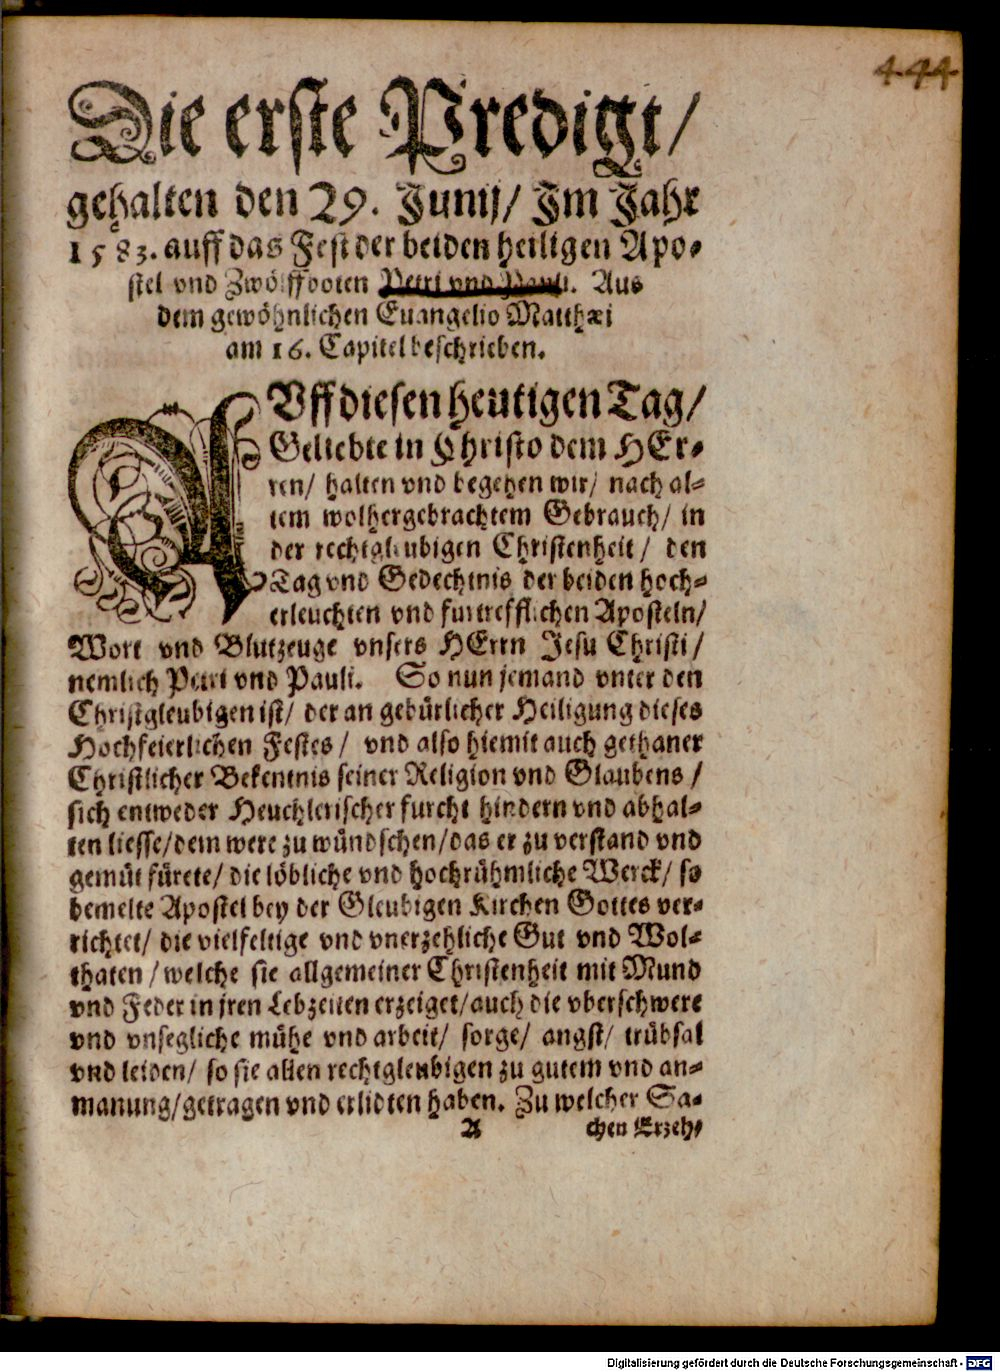 444
Die erste Predigt/
gehalten den 29. Junij/ Im Jahr
1583. auff das Fest der beiden heiligen Apo-
stel vnd Zwölffboten Petri vnd Pauli. Aus
dem gewöhnlichen Euangelio Matthæi
am 16. Capitel beschrieben.
AVff diesen heutigen Tag/
Geliebte in Christo dem HEr-
ren/ halten vnd begehen wir/ nach al-
tem wolhergebrachtem Gebrauch/ in
der rechtgleubigen Christenheit/ den
Tag vnd Gedechtnis der beiden hoch-
erleuchten vnd furtrefflichen Aposteln/
Wort vnd Blutzeuge vnsers HErrn Jesu Christi/
nemlich Petri vnd Pauli. So nun jemand vnter den
Christgleubigen ist/ der an gebürlicher Heiligung dieses
Hochfeierlichen Festes/ vnd also hiemit auch gethaner
Christlicher Bekentnis seiner Religion vnd Glaubens/
sich entweder Heuchlerischer furcht hindern vnd abhal-
ten liesse/ dem were zu wündschen/ das er zu verstand vnd
gemüt fürete/ die löbliche vnd hochrühmliche Werck/ so
bemelte Apostel bey der Gleubigen Kirchen Gottes ver-
richtet/ die vielfeltige vnd vnerzehliche Gut vnd Wol-
thaten/ welche sie allgemeiner Christenheit mit Mund
vnd Feder in jren Lebzeiten erzeiget/ auch die vberschwere
vnd vnsegliche mühe vnd arbeit/ sorge/ angst/ trübsal
vnd leiden/ so sie allen rechtgleubigen zu gutem vnd an-
manung/ getragen vnd erlidten haben. Zu welcher Sa-
A chen Erzeh-
Digitalisierung gefördert durch die Deutsche Forschungsgemeinschaft - DFG